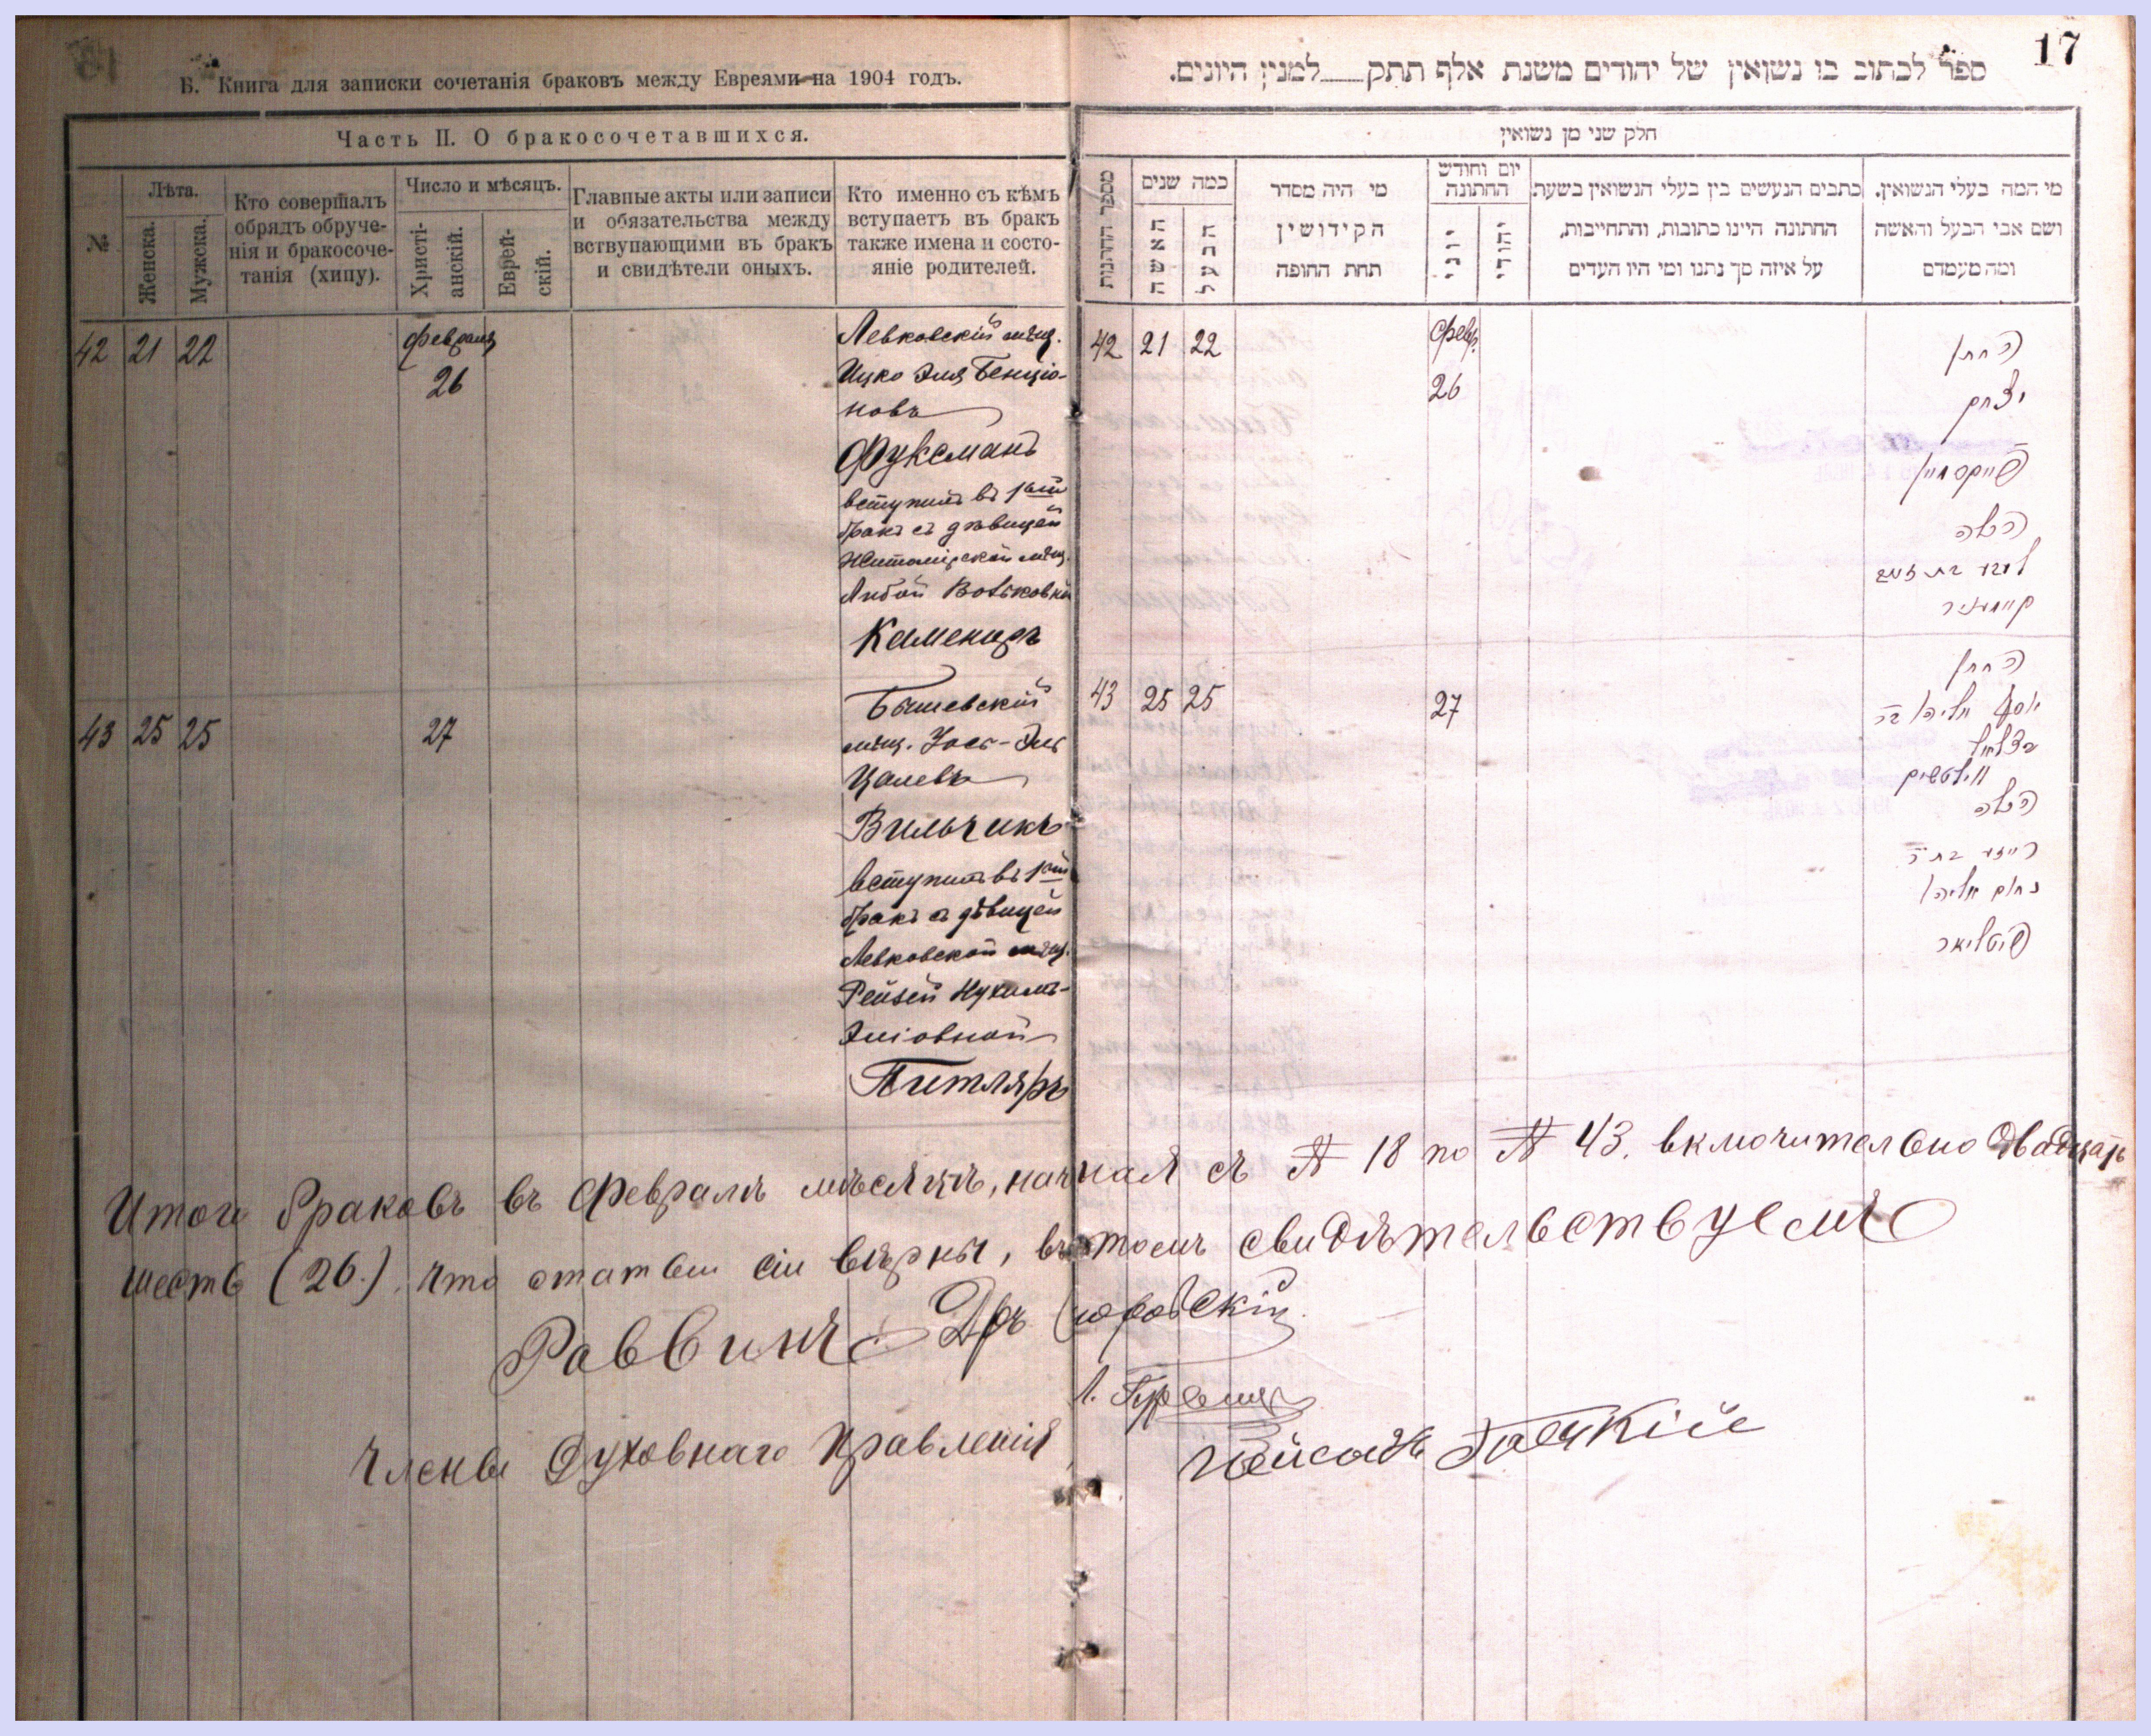 Б. Книга для записки сочетанія браковъ между Евреями на 1904 годъ.
Часть II. О бракосочетавшихся.
№
Лѣта.
Женска.
Мужска.
Кто совершалъ
обрядъ обруче-
нія и бракосоче-
танія (хипу).
Число и мѣсяцъ.
Христі-
анскій.
Еврей-
скій.
Главные акты или записи
и обязательства между
вствупающими въ бракъ
и свидѣтели оныхъ.
Кто именно съ кѣмъ
вступаетъ въ бракъ
также имена и состо-
яніе родителей.
42 21 22
февраля
26
Левковскій мѣщ.
Ицко Эля Бенціо-
новъ
Фуксманъ
вступилъ въ 1ый
бракъ съ дѣвицей
Житомірской мѣщ.
Любой Вольковной
Камениръ
43 25 25
27
Бышевскій
мѣщ. Іось-Эль
Цалевъ
Вильчикъ
вступилъ въ 1ый
бракъ съ дѣвицей
Левковской мѣщ.
Рейзей Нухимъ-
Эліовной
Питляръ
17
ספר לכתוב בו נשואין של יהודים משנת אלף תתק למנין היונים.
חלק שני מן נשואין
מי המה בעלי הנשואין,
ושם אבי הבעל והאשה
ומה מעמדם
כתבים הנעשים בין בעלי הנשואין בשעת
החתונה היינו כתובות, והתחייבות,
על איזה סך נתנו ומי היו העדים
יום וחודש
החתונה
יהודי
יוני
מי היה מסדר
הקידושין
תחת החופה
כמה שנים
הבעל
האשה
42 21 22
февр.
26
החתן
יצחק
פוקסמאן
הכלה
ליבע בת
43 25 25
27
החתן
יוסף אליהו בר
בצלאל
וילטשיק
הכלה
רייזע בת ר׳
נחום אליהו
פיטליאר
Итого браковъ въ Февралѣ мѣсяцѣ, начиная съ № 18 по № 43. включительно двадцать
шесть (26). Что статьи сіи вѣрны, въ томъ свидѣтельствуемъ
Раввинъ Дръ
Члены Духовнаго Правленія